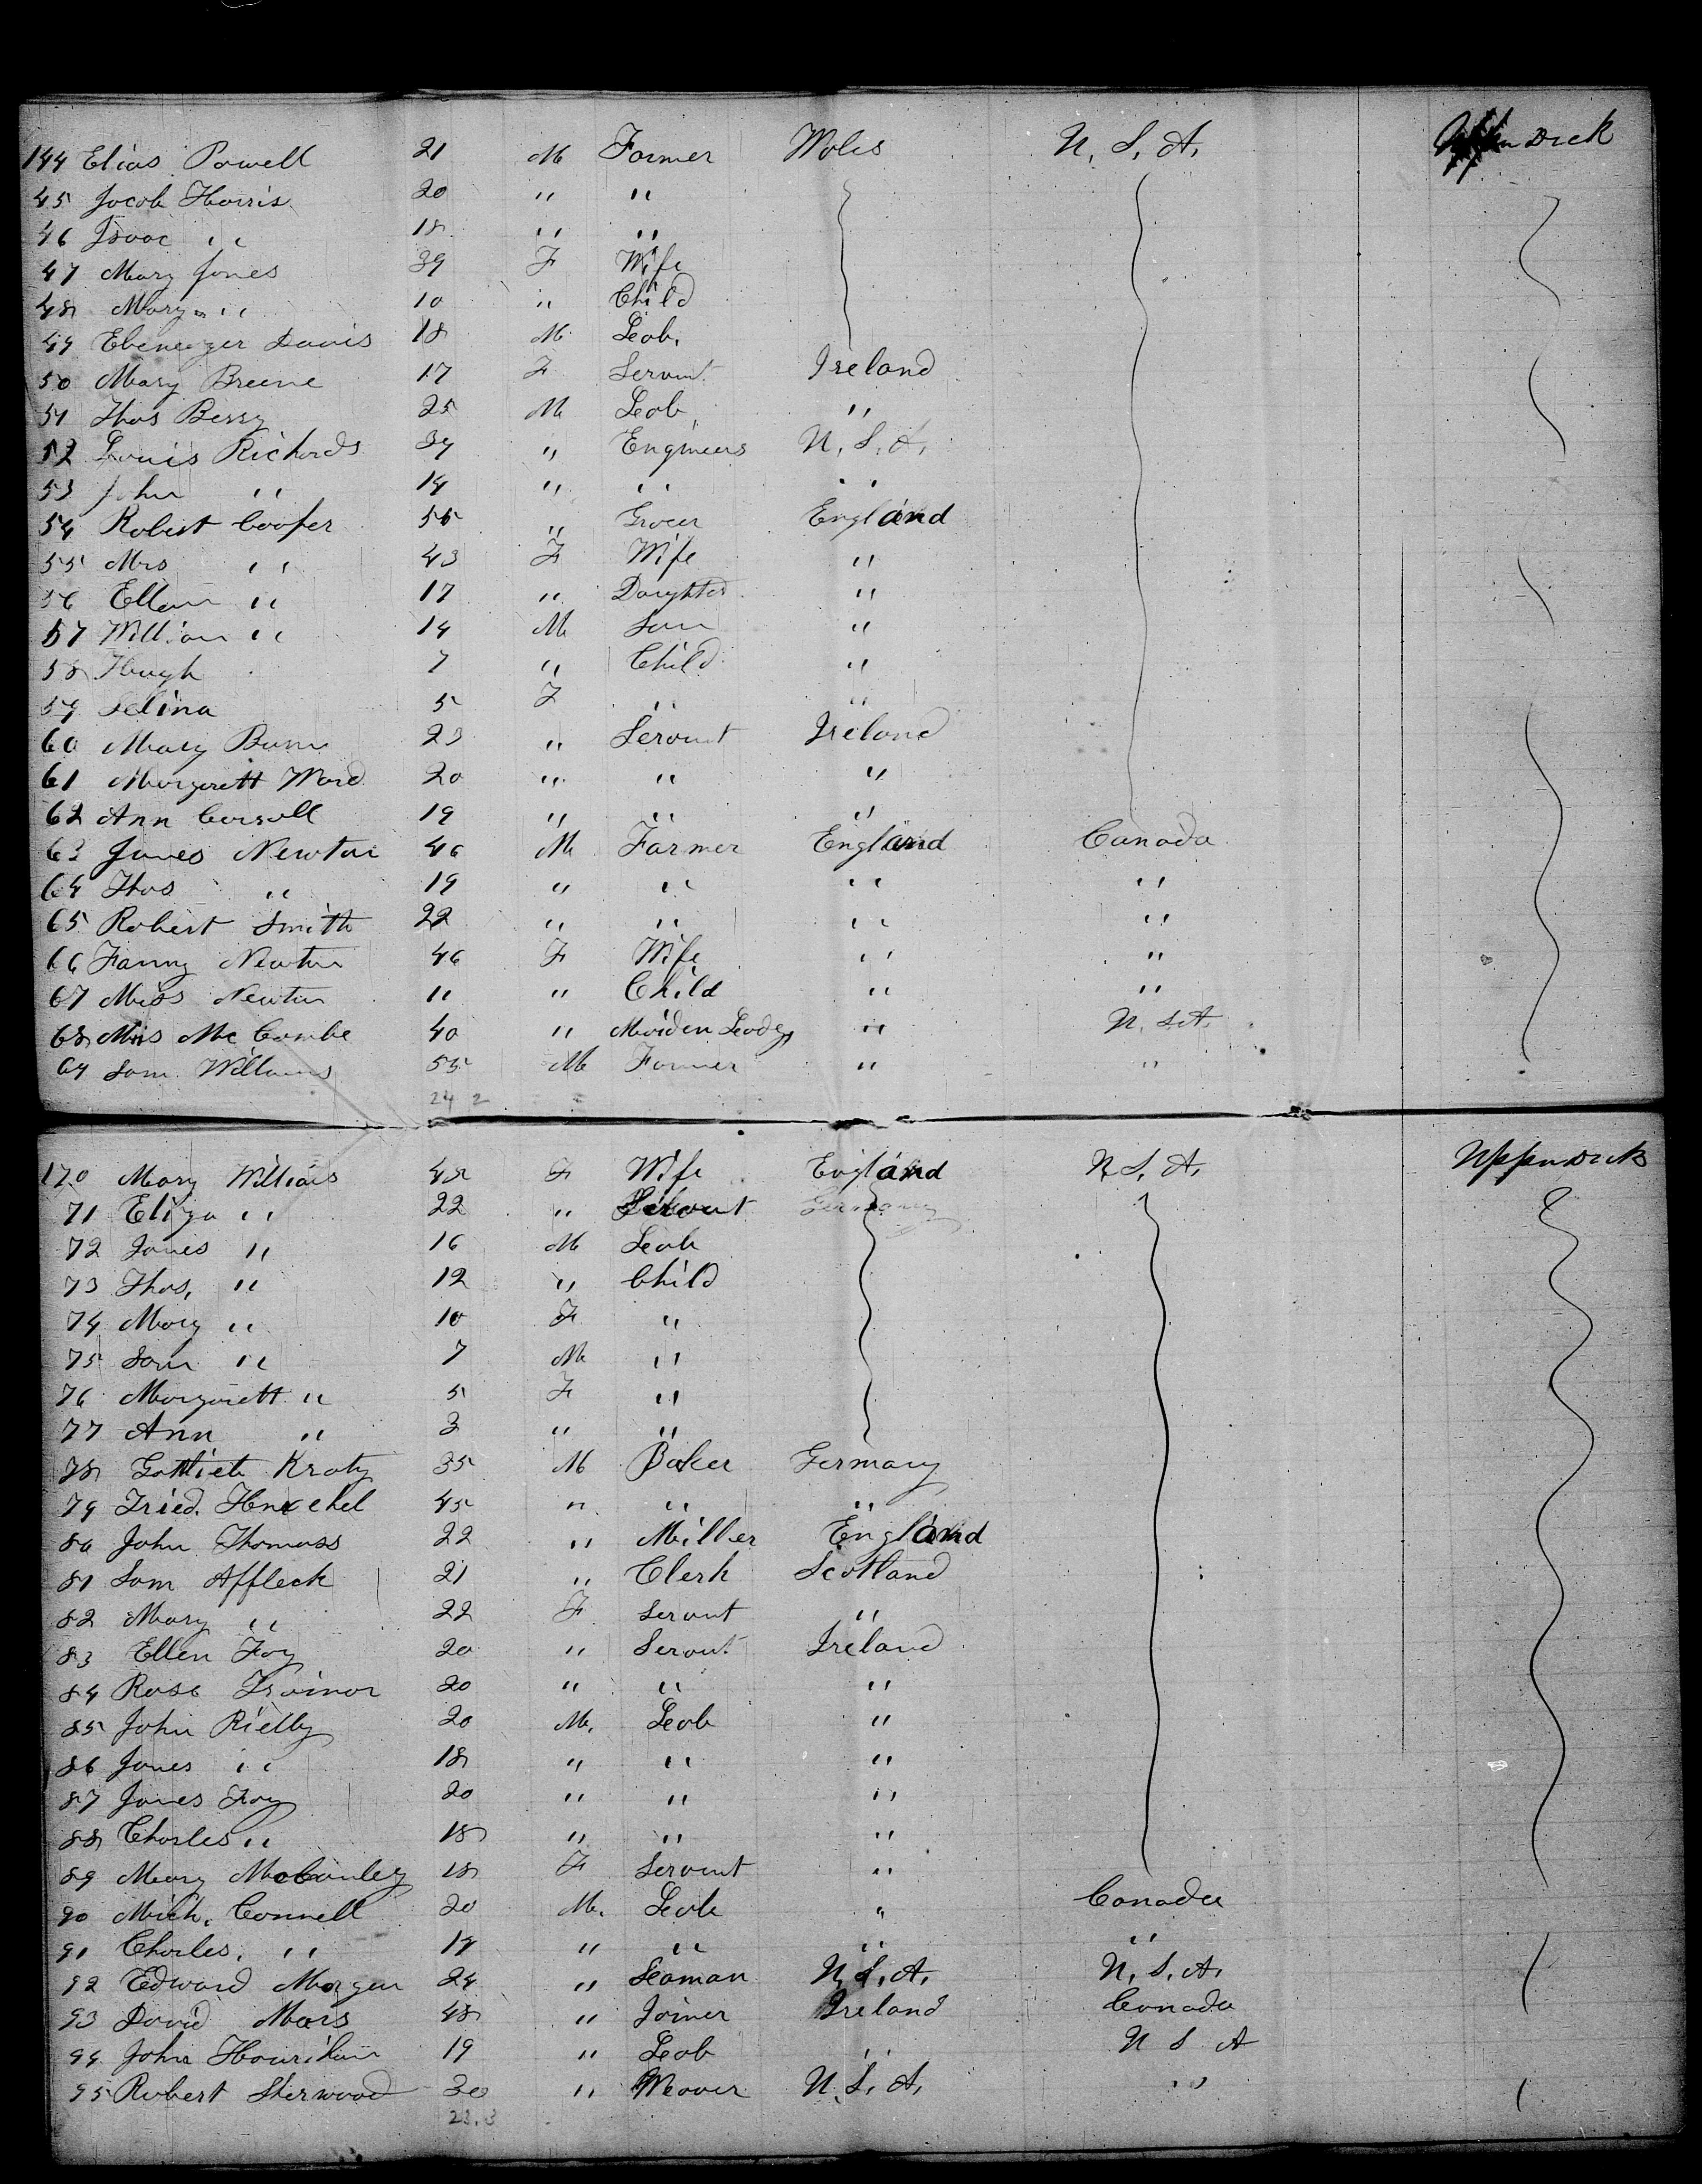 144 Elias Powell 21 M Farmer Wales U. S. A. Upper Deck
45 Jacob Harris 20 " "
46 Isaac " 18 " "
47 Mary Jones 39 F Wife
48 Mary " 10 " Child
49 Ebenezer Davis 18 M Leab.
50 Mary Breene 17 F Servant Ireland
51 Thos Berry 25 M Leab "
52 Louis Richards 39 " Engineers U. S. A.
53 John " 14 " " "
54 Robert Cooper 55 " Grocer England
55 Mrs " 43 F Wife "
56 Ellen " 17 " Daughter "
57 William " 14 M Son "
58 Hugh 7 " Child "
59 Selina 5 F " "
60 Mary 23 " Servant Ireland
61 Margarett Ward 20 " " "
62 Ann 19 " " "
63 James Newton 46 M Farmer England Canada
64 Thos " 19 " " " "
65 Robert Smith 22 " " " "
66 Fanny Newton 46 F Wife " "
67 Miss Newton 11 " Child " "
68 Miss Mc Combe 40 " Maiden Leady " U. S. A.
69 Sam Williams 55 M Farmer " "
24 2
170 Mary Williams 48 F Wife England U. S. A. Upper Deck
71 Eliza " 22 " Servant Germany
72 James " 16 M Leab
73 Thos. " 12 " Child
74 Mary " 10 F "
75 Sam " 7 M "
76 Margarett " 5 F "
77 Ann " 3 " "
78 Gottlieb Kraty 35 M Baker Germany
79 Fried. Henschel 45 " " "
80 John Thomass 22 " Miller England
81 Sam Affleck 21 " Clerk Scotland
82 Mary " 22 F Servant "
83 Ellen Foy 20 " Servant Ireland
84 Rose Trainor 20 " " "
85 John Rielly 20 M. Leab "
86 James " 18 " " "
87 James Foy 20 " " "
88 Charles " 18 " " "
89 Mary McCauley 18 F Servant "
90 Mich. Connell 20 M. Leab " Canada
91 Charles. " 18 " " " "
92 Edward Morgan 24 " Seaman U. S. A. U. S. A.
93 David Mars 48 " Joiner Ireland Canada
94 John Hourihan 19 " Leab " U S A
95 Robert Sherwood 30 " Weaver U. S. A. "